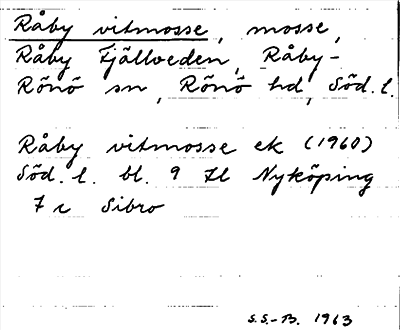 Råby vitmosse, mosse,
Råby Fjällveden, Råby-
Rönö sn, Rönö hd, Söd. l.
Råby vitmosse ek (1960)
Söd. l. bl. 9 H Nyköping
7 c Sibro
S.S.-B. 1963